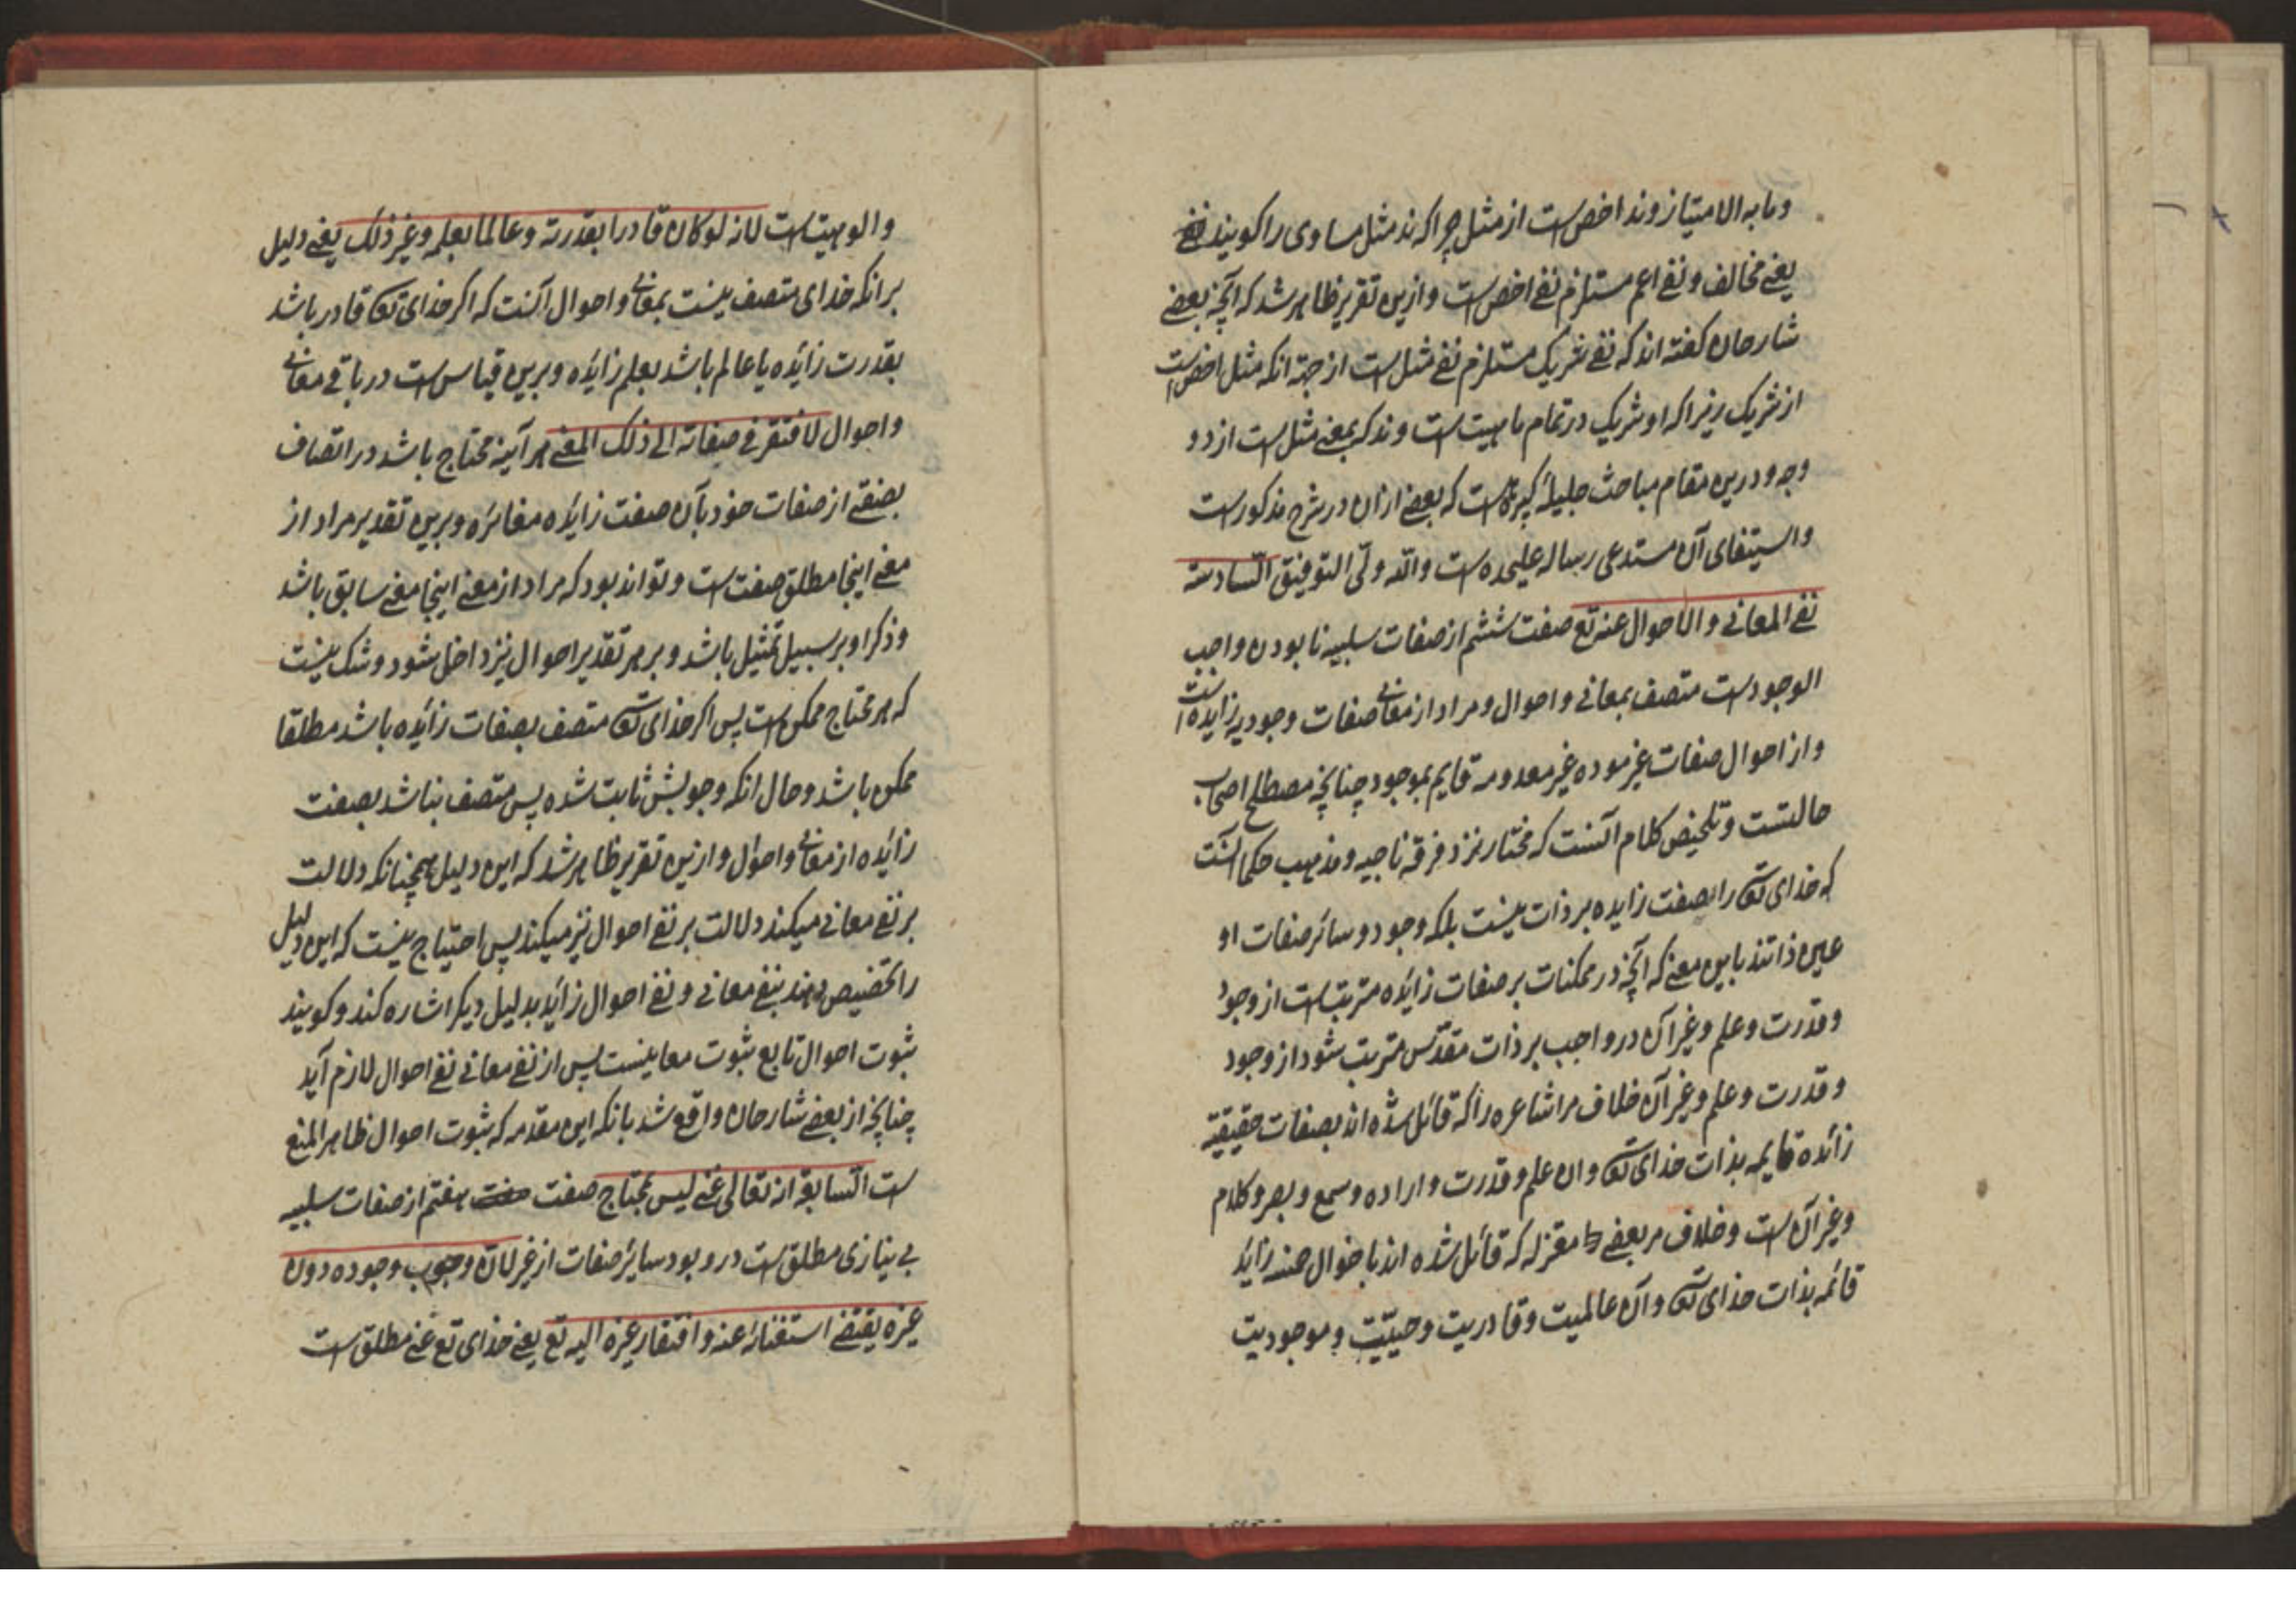 وما به الامتیاز وند اخص است از مثل چرا که ند مثل مساوی را کویند
یعنی مخالف و نفی اعم مستلزم نفی اخص است و ازین تقریر ظاهر شد که آنچه بعضی
شارحان کفته اند که نفی شریک مستلزم نفی مثل است از جهة انکه مثل اخص است
از شریک زیرا که او شریک در تمام ماهیت است و ند که بمعنی مثل است از دو
وجه و درین مقام مباحث جلیله کثیره است که بعضی ازان در شرح مذکور است
واستیفای آن مستدعی رساله علیحده است والله ولی التوفیق السادسة
نفی المعانی والاحوال عنه تع صفت ششم از صفات سلبیه نا بودن واجب
الوجود است متصف بمعانی و احوال و مراد از معانی صفات وجودیه زایده است
و از احوال صفات غیر موده غیر معدومه قایم بموجود چنانچه مصطلح اصحاب
حالتست و تلخیص کلام آنست که مختار نزد فرقه ناجیه و مذهب حکما آنست
که خدای تعالی را صفت زایده بر ذات نیست بلکه وجود و سائر صفات او
عین ذاتند باین معنی که آنچه در ممکنات بر صفات زائده مترتب است از وجود
و قدرت و علم و غیر آن در واجب بر ذات مقدّس مترتب شود از وجود
و قدرت و علم و غیر آن خلاف مر اشاعره را که قائل شده اند بصفات حقیقیة
زائده قایمه بذات خدای تعالی وان علم و قدرت و اراده و سمع و بصر و کلام
و غیر آن است و خلاف مر بعضی معتزله که قائل شده اند باحوال زاید
قائمه بذات خدای تعالی و آن عالمیت و قادریت و حییّت و موجودیت
والوهیت است لانه لو کان قادرا بقدرته وعالما بعلم وغیر ذلک یعنی دلیل
بر انکه خدای متصف نیست بمعانی و احوال آنست که اکر خدای تعالی قادر باشد
بقدرت زائده یا عالم باشد بعلم زائده و برین قیاس است در باقی معانی
و احوال لافتقر فی صفاته الی ذلک المعنی هر آینه محتاج باشد در اتصاف
بصفتی از صفات خود بآن صفت زائده مغائره و برین تقدیر مراد از
معنی اینجا مطلق صفت است و تواند بود که مراد از معنی اینجا معنی سابق باشد
و ذکر او بر سبیل تمثیل باشد و بر هر تقدیر احوال نیز داخل شود و شک نیست
که هر محتاج ممکن است پس اکر خدای تعالی متصف بصفات زائده باشد مطلقا
ممکن باشد و حال انکه وجوبش ثابت شده پس متصف نباشد بصفت
زائده از معانی و احوال و ازین تقریر ظاهر شد که این دلیل همچنانکه دلالت
بر نفی معانی میکند دلالت بر نفی احوال نیز میکند پس احتیاج نیست که این دلیل
را تخصیص دهند بنفی معانی و نفی احوال زائد بدلیل دیکر اشاره کند و کویند
ثبوت احوال تابع ثبوت معانیست پس از نفی معانی نفی احوال لازم آید
چنانچه از بعضی شارحان واقع شد بانکه این مقدمه که ثبوت احوال ظاهر المنع
است السابعة انه تعالی غنی لیس بمحتاج صفت هفتم از صفات سلبیه
بی نیازی مطلق است در وبود سایر صفات از غیر لان وجوب وجوده دون
غیره یقتضی استغنائه عنه وافتقار غیره الیه تع یعنی خدای تع غنی مطلق است